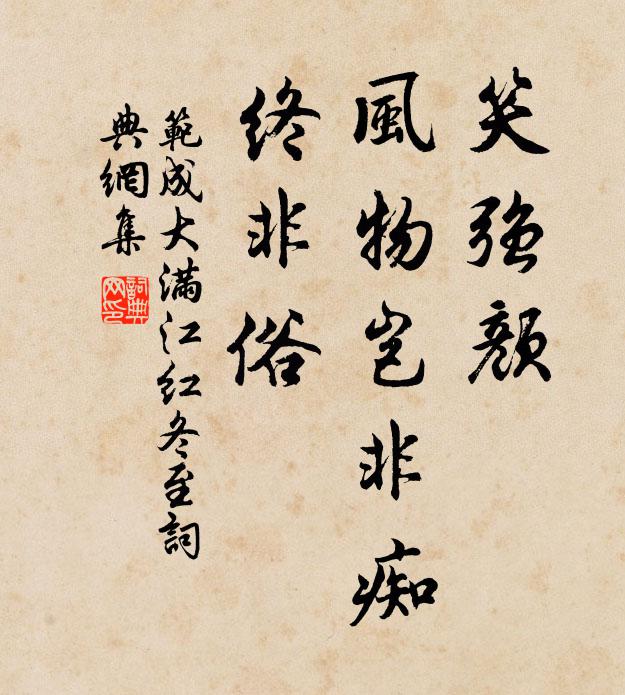 笑強顏
風物豈非痴
終非俗
範成大滿江紅冬至詞
典網集
詞典
网印